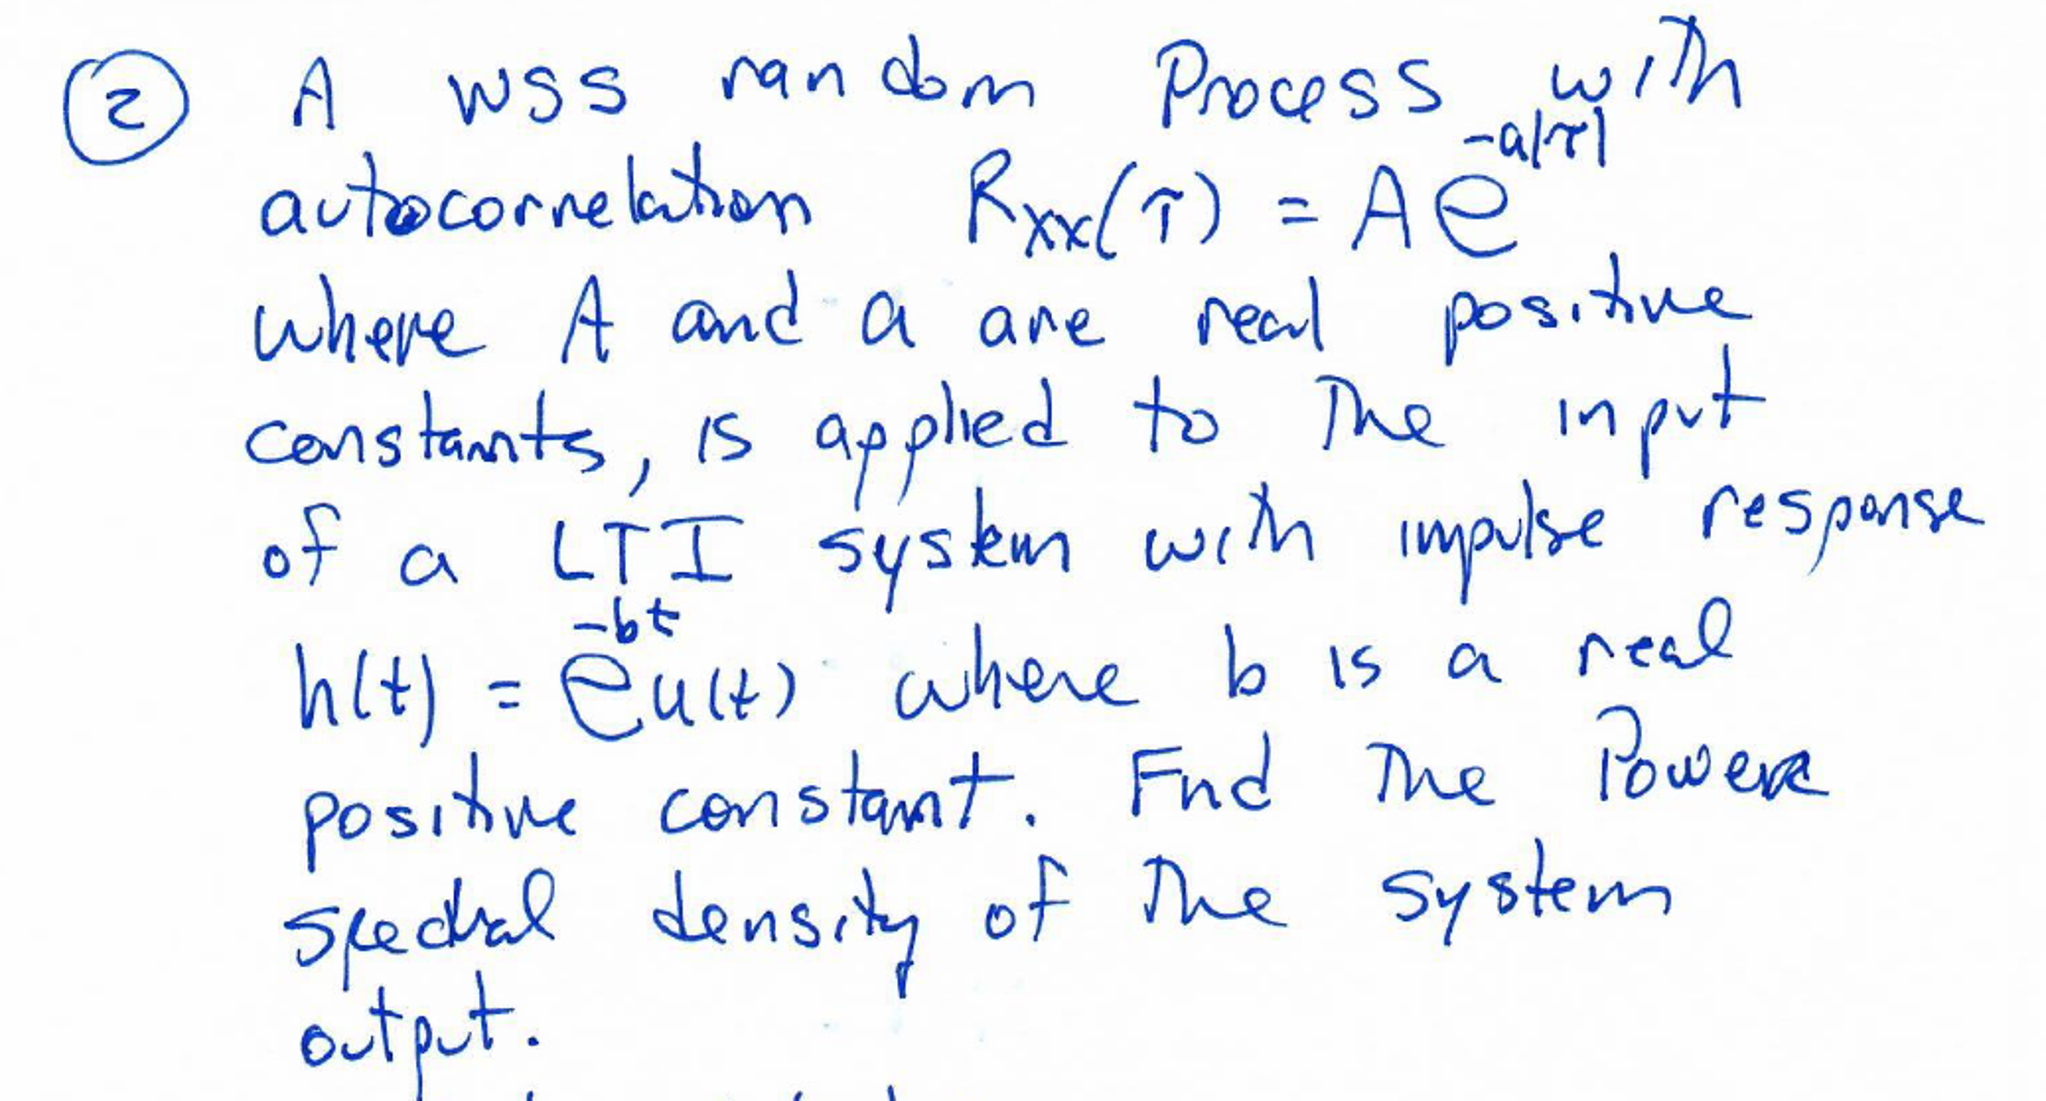 ② A WSS random Process with
autocorrelation Rxx(τ) = Ae^-a|τ|
where A and a are real positive
constants, is applied to the input
of a LTI system with impulse response
h(t) = e^-bt u(t) where b is a real
positive constant. Find the Power
spectral density of the system
output.